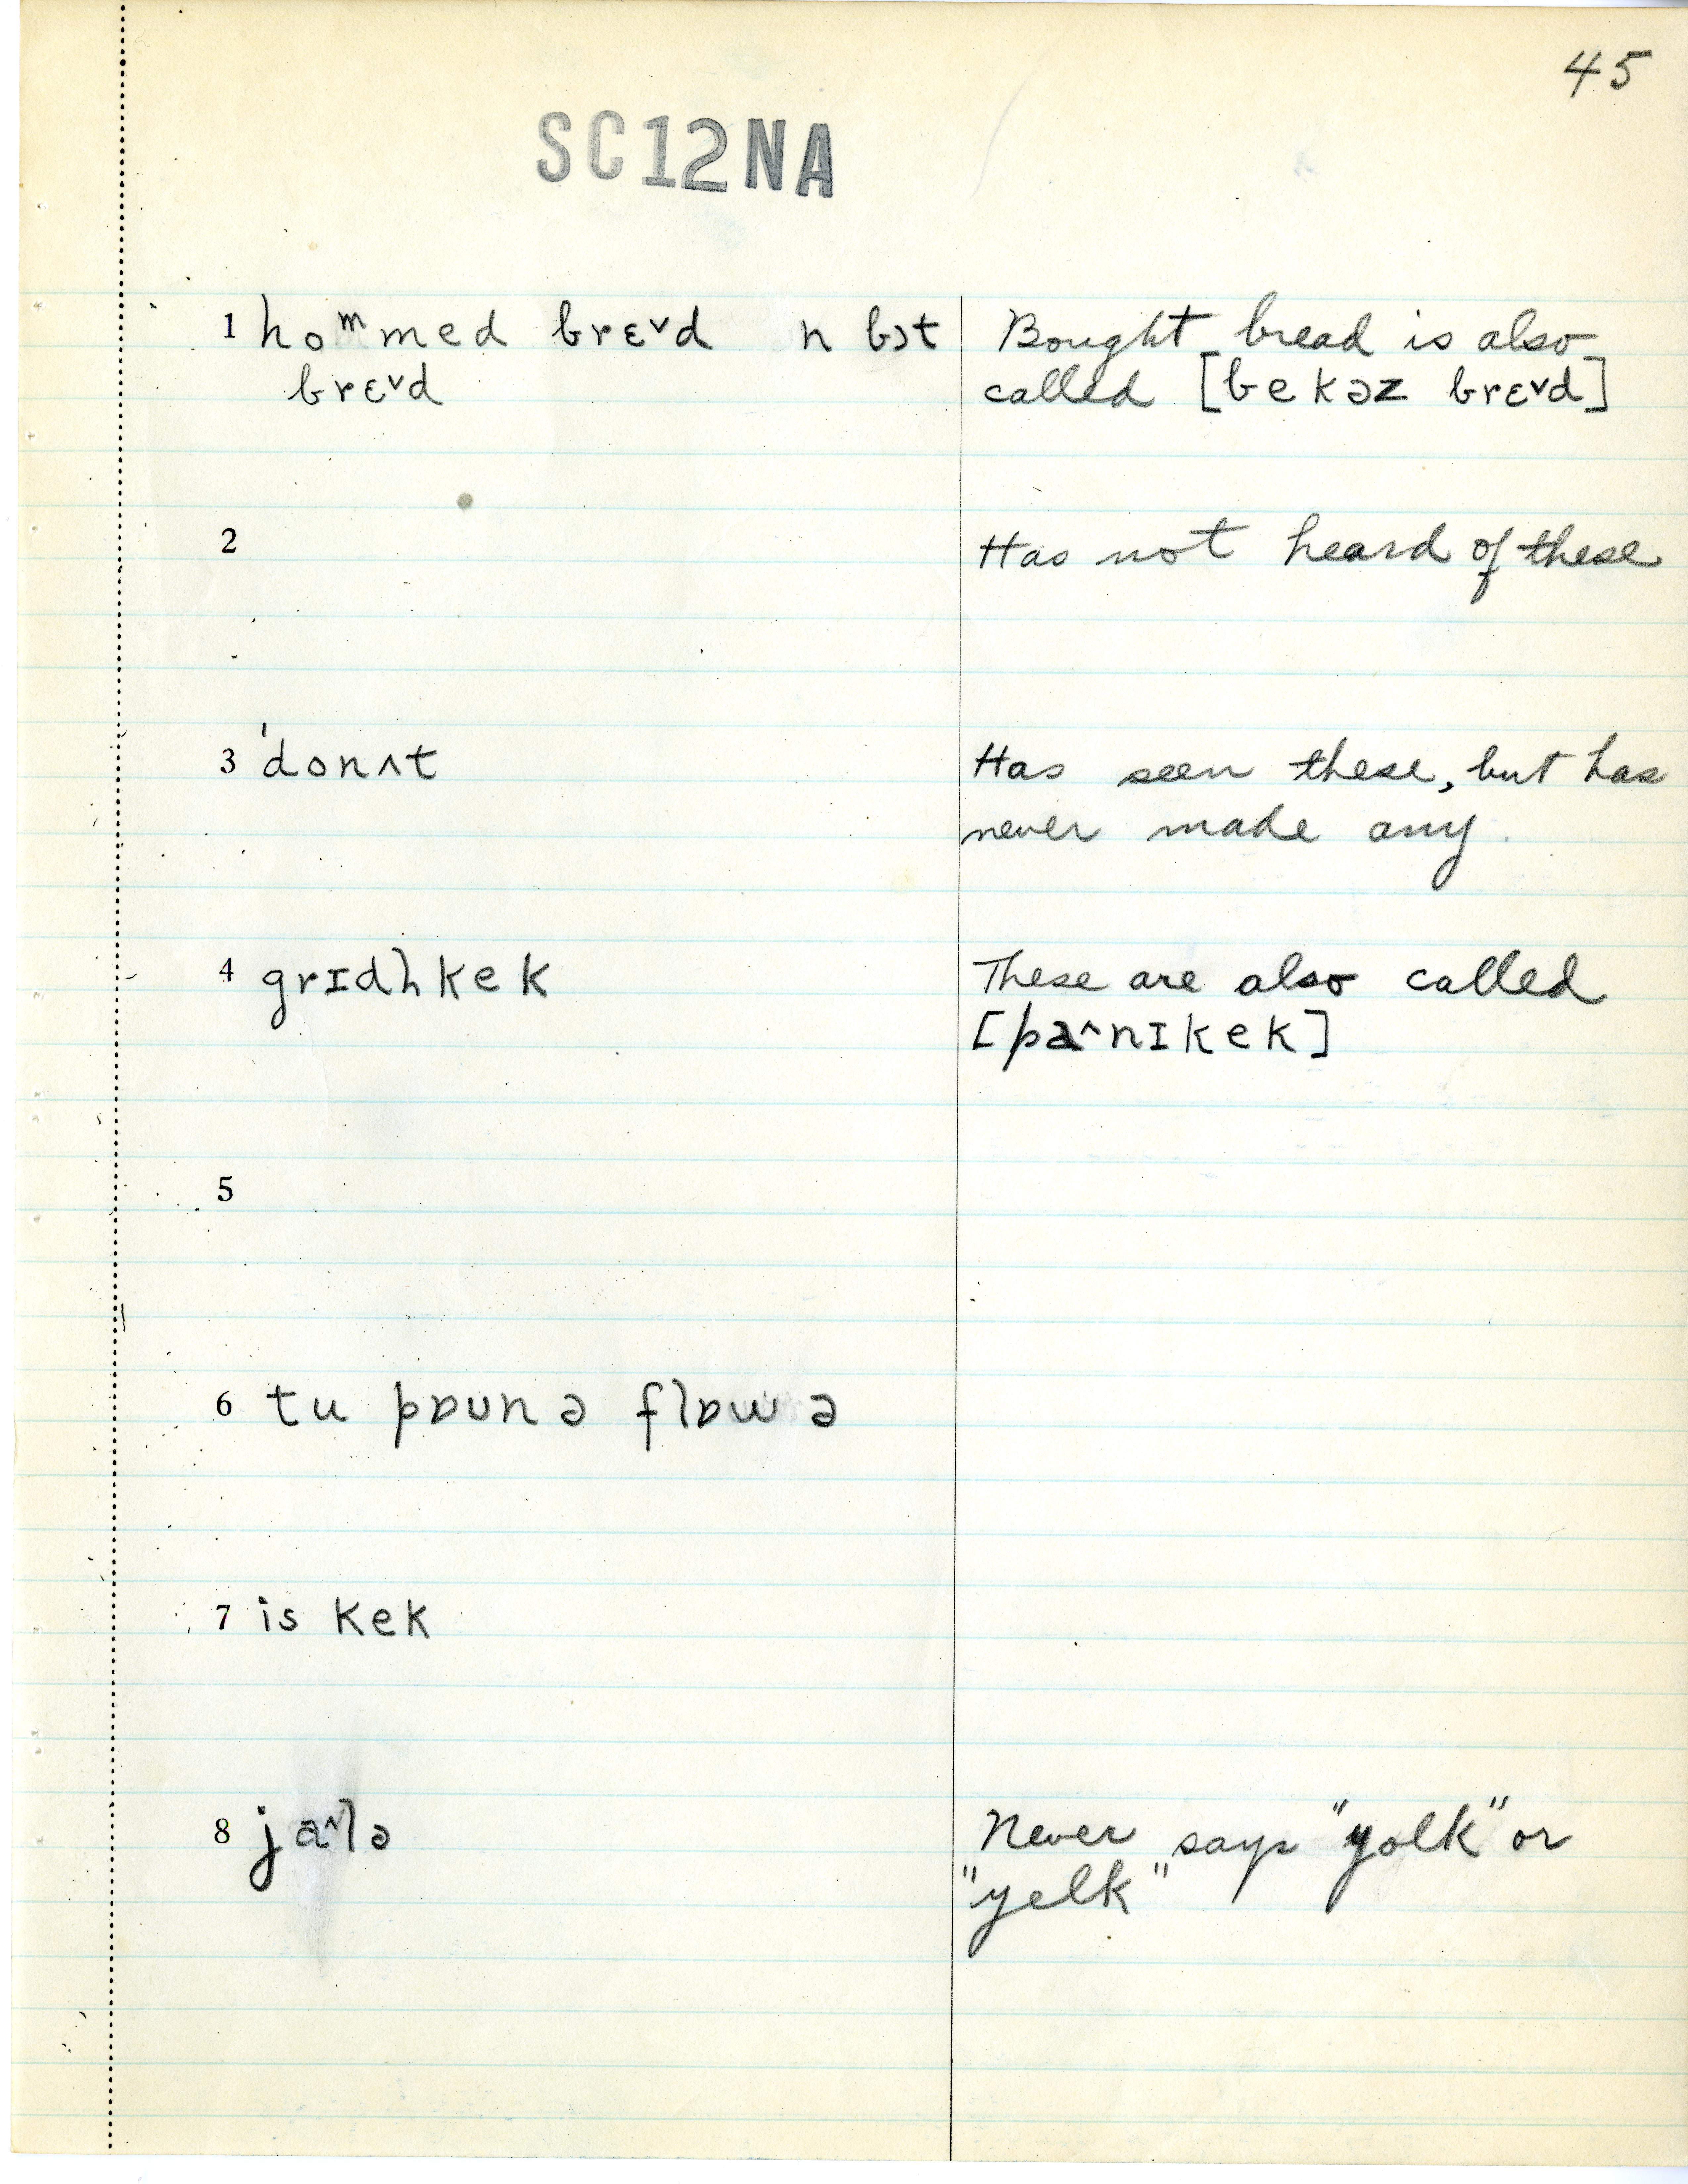 45
SC12NA
1 hoᵐmed brɛ˅d n bɔt Bought bread is also
brɛ˅d called [bekəz brɛ˅d]
2 Has not heard of these
3 ˈdonʌt Has seen these, but has
never made any.
4 grɪdl̩kek These are also called
[pa˄nɪkek]
5
6 tu pɒunə flɒwə
7 is kek
8 ja˄lə Never says "yolk" or
"yelk"